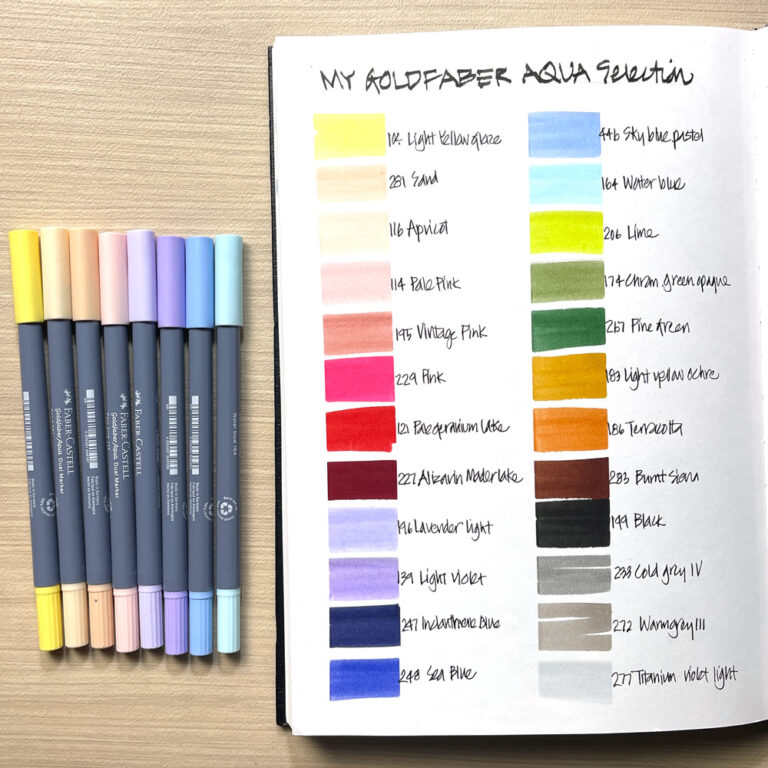 MY GOLDFABER AQUA Selection
104 Light Yellow glaze
281 Sand
116 Apricot
114 Pale Pink
195 Vintage Pink
229 Pink
121 Pale geranium Lake
227 Alizarin Mader lake
196 Lavender light
139 Light violet
247 Indanthrene Blue
248 Sea Blue
446 Sky blue pastel
164 Water blue
206 Lime
174 Chrom. green opaque
267 Pine Green
183 Light yellow ochre
186 Terracotta
283 Burnt Siena
199 Black
233 Cold grey IV
272 Warm grey III
277 Titanium violet light
FABER-CASTELL
Goldfaber Aqua Dual Marker
FABER-CASTELL
Goldfaber Aqua Dual Marker
FABER-CASTELL
Goldfaber Aqua Dual Marker